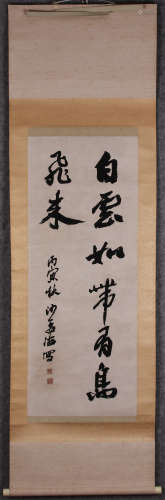 白雲如帶有鳥
飛来
丙寅秋沙孟海書